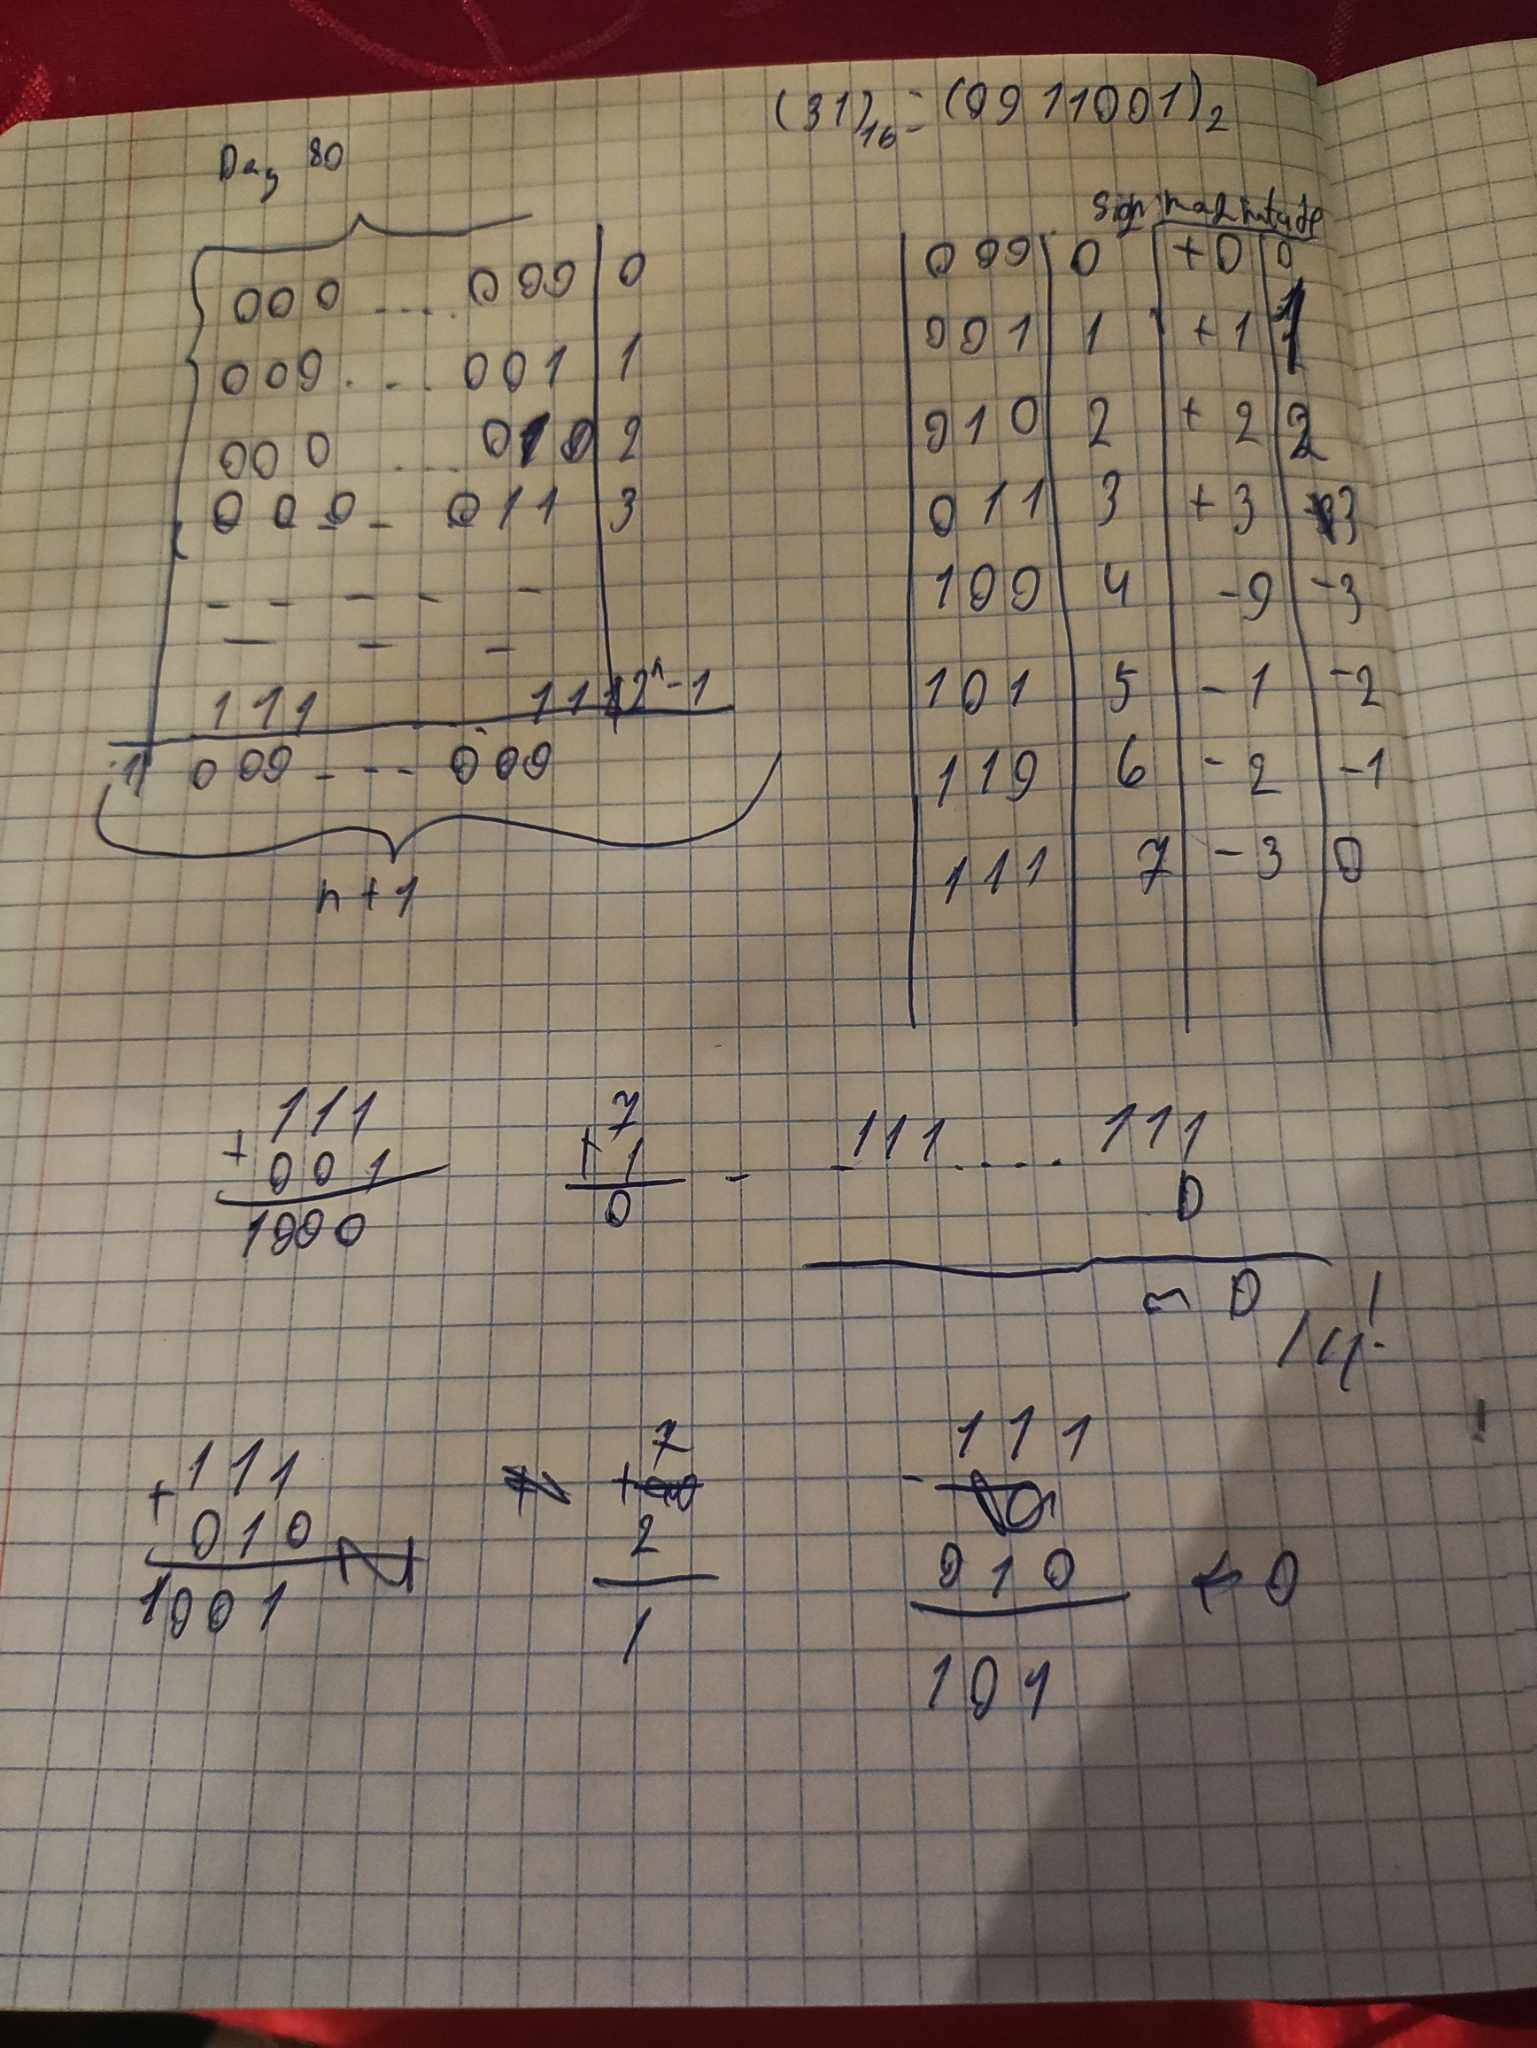 (31)16 = (0011001)2
Day 80
000 .... 000 | 0
000 ... 001 | 1
000 .... 010 | 2
000 - 011 | 3
- - - - -
- - -
111 111 | 2^n - 1
1 000 --- 000
n + 1
Sign magnitude
000 | 0 | +0 | 0
001 | 1 | +1 | 1
010 | 2 | +2 | 2
011 | 3 | +3 | 3
100 | 4 | -0 | -3
101 | 5 | -1 | -2
110 | 6 | -2 | -1
111 | 7 | -3 | 0
111
+ 001
1000
7
+ 1
0
- 111 .... 111
0
0
111
+ 010
1001
7
+
2
1
111
-
010
101
← 0